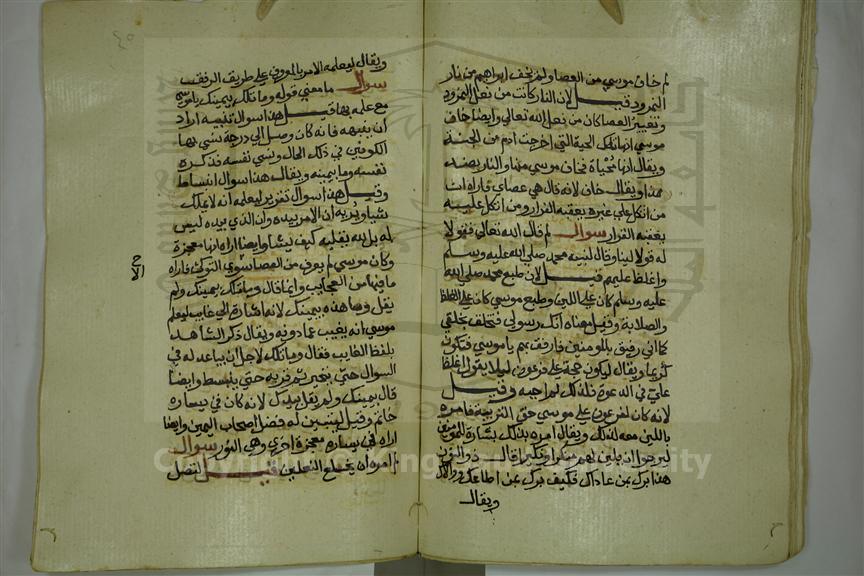 لم خاف موسي من العصا ولم يخف ابراهيم من نار
النمرود قيل لان النار كانت من فعل النمرود
وتغيير العصا كان من فعل الله تعالي وايضا خاف
موسي انها تلك الحية التي اخرجت ادم من الجنة
ويقال انها فخاف موسي منها والنار بضد
هذا ويقال خاف لانه قال هي عصاي فاراه ان
من اتكل علي غيره يعقبه الفرار ومن اتكل عليه
يعقبه القرار سوال لم قال الله تعالي فقولا
له قولا لينا وقال لنبيه محمد صلي الله عليه وسلم
واغلظ عليهم قيل لان طبع محمد صلي الله
عليه وسلم كان علي اللين وطبع موسي كان علي الغلظ
والصلابة وقيل معناه انك رسولي فتخلق بخلقي
كما اني رفيق بالمومنين فارفق بهم يا موسي فتكون
كريما ويقال ليكون حجة علي فرعون ليلا يقول اغلظ
علي في الدعوة فلذلك لم اجبه وقيل
لانه كان لفرعون علي موسي حق التربية فامره
باللين معه لذلك ويقال امره بذلك بشارة للمومنين
ليرجوا ان يلين لهم منكرا ونكيرا قال ذو النون
هذا برك بمن عاداك فكيف برك بمن اطاعك
ويقال
ويقال ليعلمه الامر بالمعروف علي طريق الرفق
سوال ما معني قوله وما تلك بيمينك يا موسي
مع علمه بها قيل هذا سوال تنبيه اراد
ان ينبهه فانه كان وصل الي درجة نسي بها
الكونين في ذلك الحال ونسي نفسه فذكره
نفسه وما بيمينه ويقال هذا سوال انبساط
وقيل هذا سوال تقرير ليعلمه انه لا يملك
شيا ويريه ان الامر بيده وان الذي بيده ليس
له بل لله يقلبه كيف يشا وايضا اراه انها معجزة
وكان موسي لم يعرف من العصا سوي التوكي فاراه
ما فيها من العجايب وانما قال وما تلك بيمينك ولم
يقل وما هذه بيمينك لانه اشارة الي غايب ليعلم
موسي انه يغيب عما دونه ويقال ذكر الشاهد
بلفظ الغايب فقال وما تلك لاجل ان يباعده في
السوال حتي يتحير ثم قربه حتي ينبسط وايضا
قال بيمينك ولم يقل بيدك لانه كان في يساره
خاتم وقيل ليبين له فضل اصحاب اليمين وايضا
اراه في يساره معجزة اخري وهي النور سوال
لم امره ان يخلع النعلين قيل لتصل